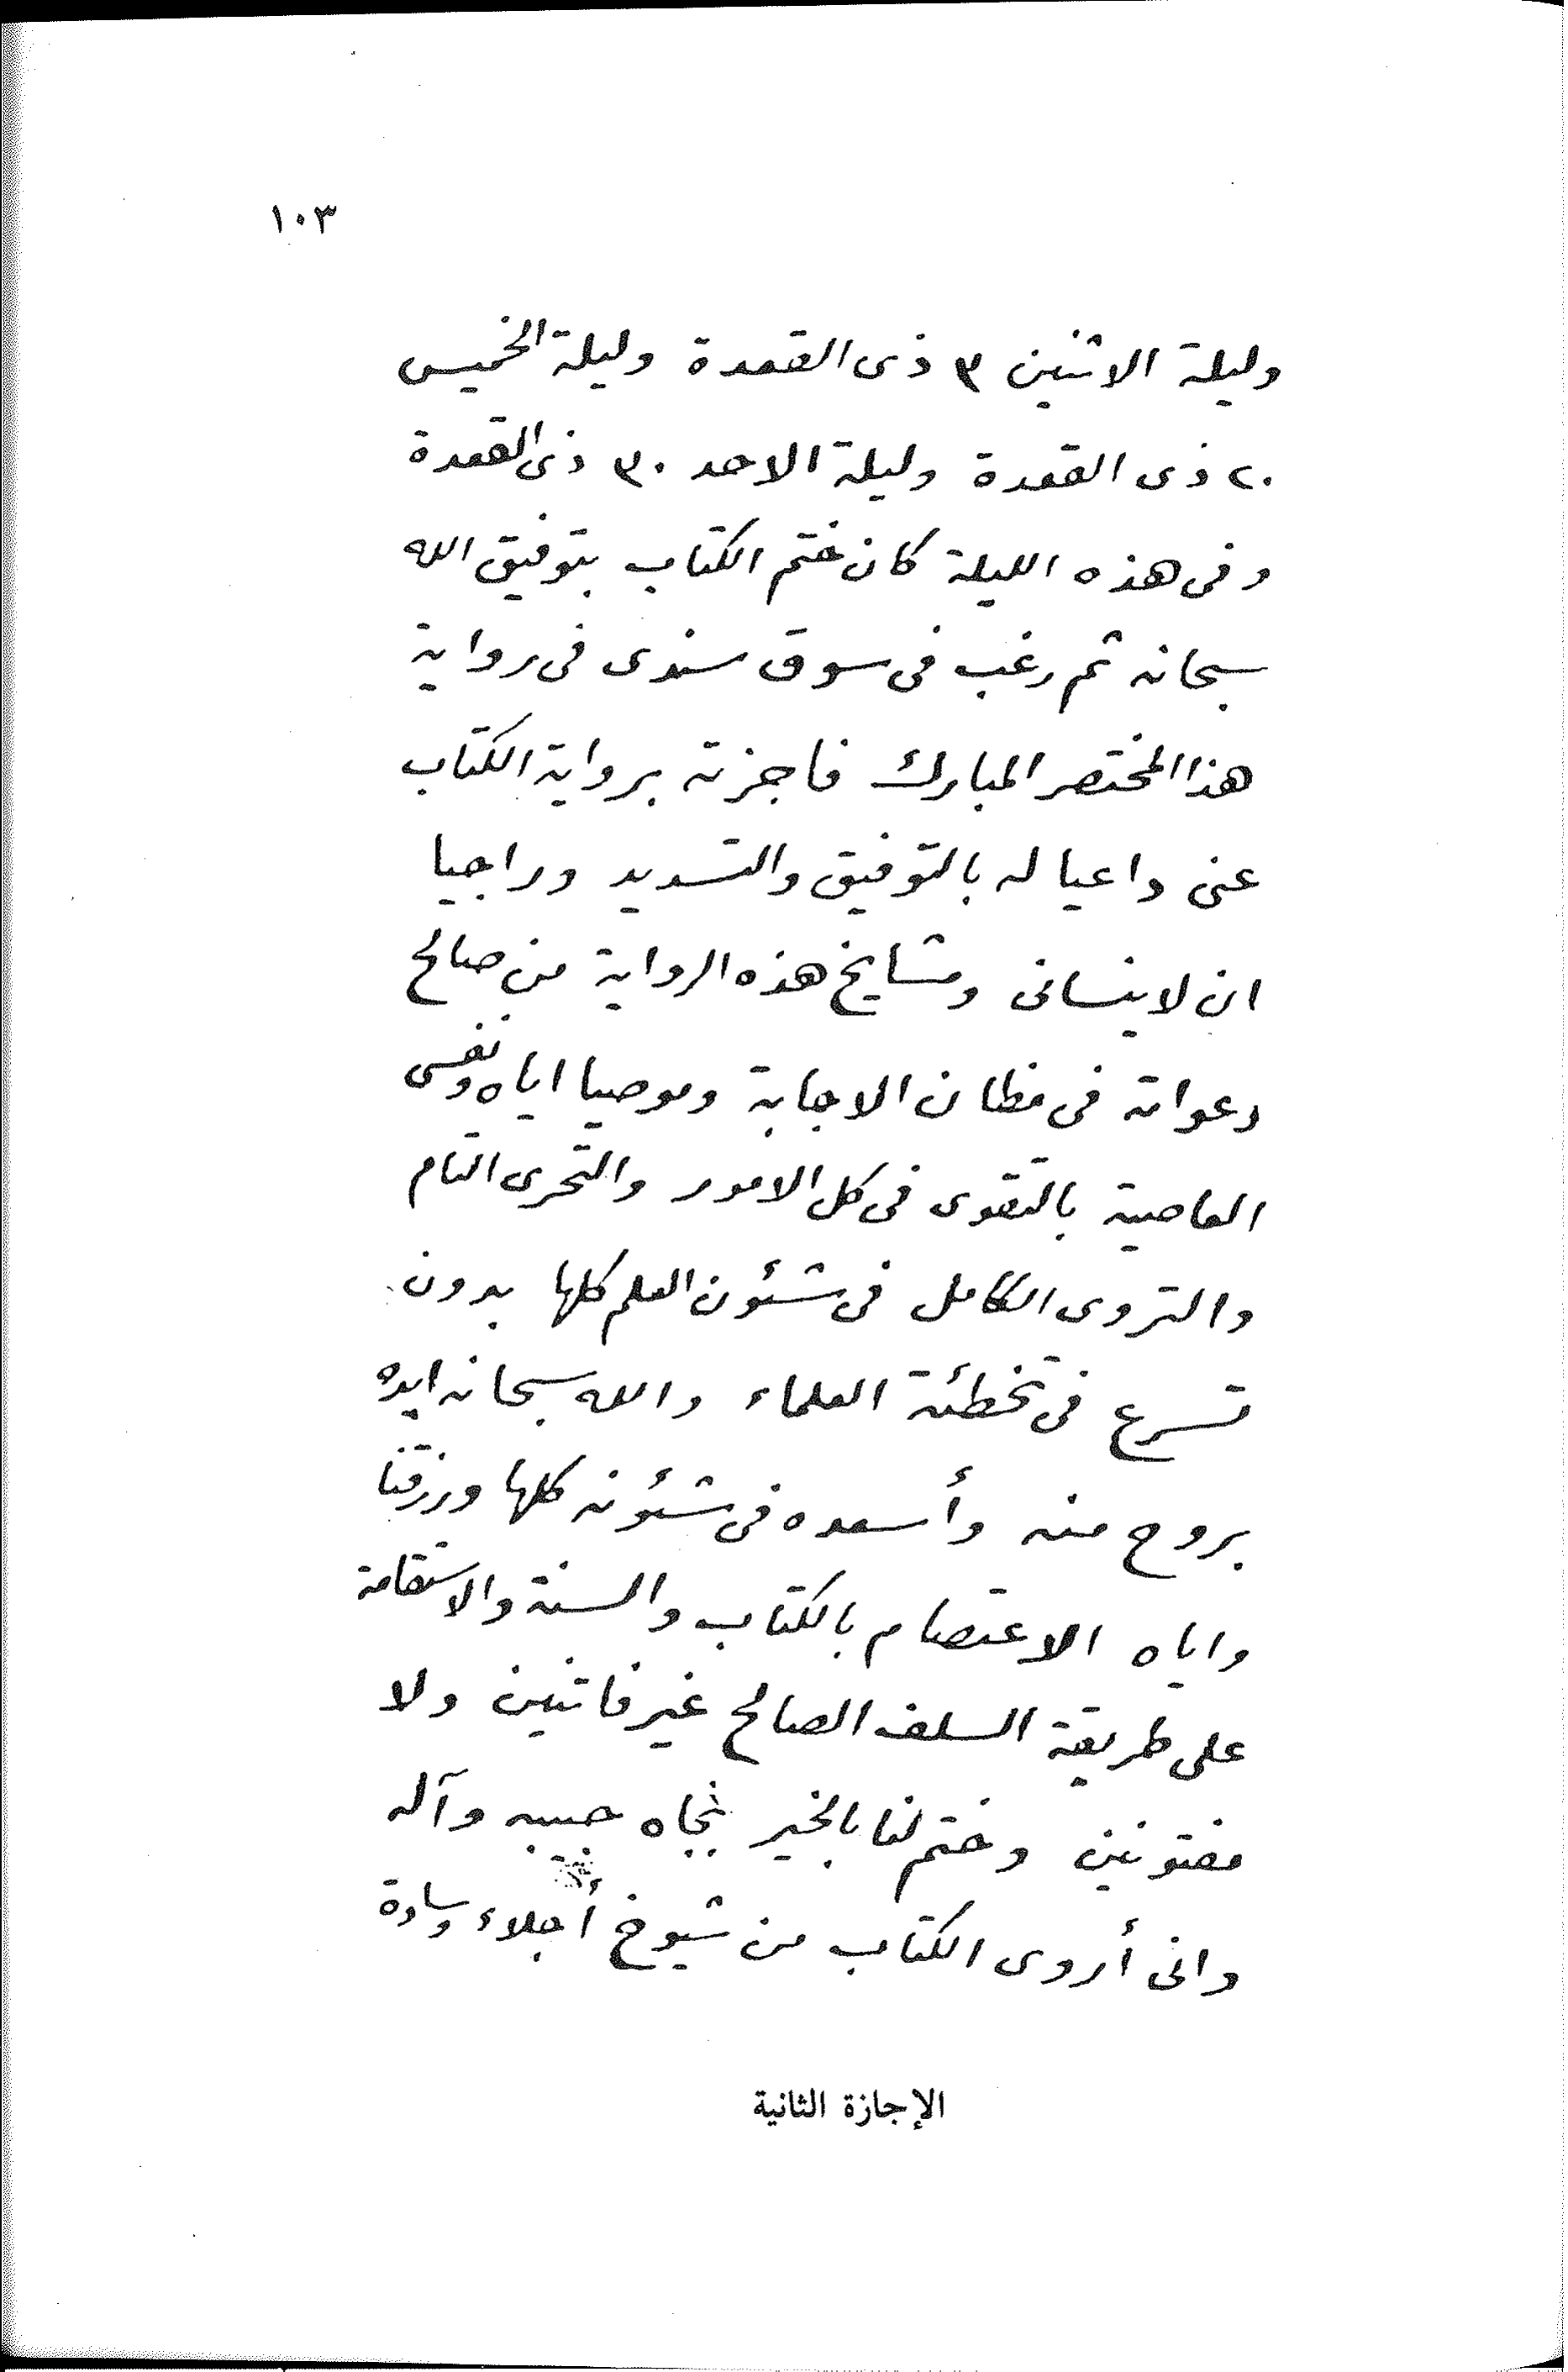 ١٠٣
وليلة الاثنين ٣ ذى القعدة وليلة الخميس
٢٠ ذى القعدة وليلة الاحد ٣٠ ذى القعدة
وفى هذه الليلة كان ختم الكتاب بتوفيق الله
سبحانه ثم رغب فى سوق سندى فى رواية
هذا المختصر المبارك فاجزته برواية الكتاب
عنى داعيا له بالتوفيق والتسديد وراجيا
ان لا ينسانى ومشايخ هذه الرواية من صالح
دعواته فى مظان الاجابة وموصيا اياه ونفسى
العاصية بالتقوى فى كل الامور والتحرى التام
والتروى الكامل فى شئون العلم كلها بدون
تسرع فى تخطئة العلماء والله سبحانه ايده
بروح منه وأسعده فى شئونه كلها ورزقنا
واياه الاعتصام بالكتاب والسنة والاستقامة
على طريقة السلف الصالح غير فاتنين ولا
مفتونين وختم لنا بالخير بجاه حبيبه وآله
وانى أروى الكتاب من شيوخ أجلاء وسادة
الإجازة الثانية